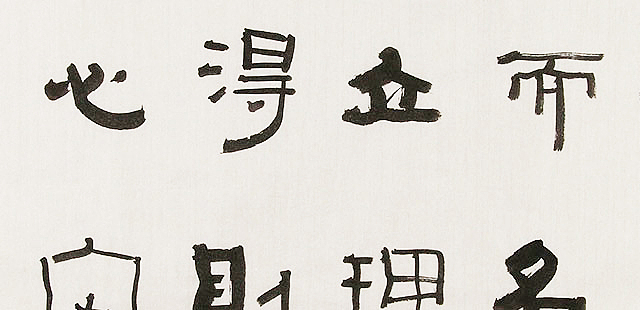 而名
立理
得則
心